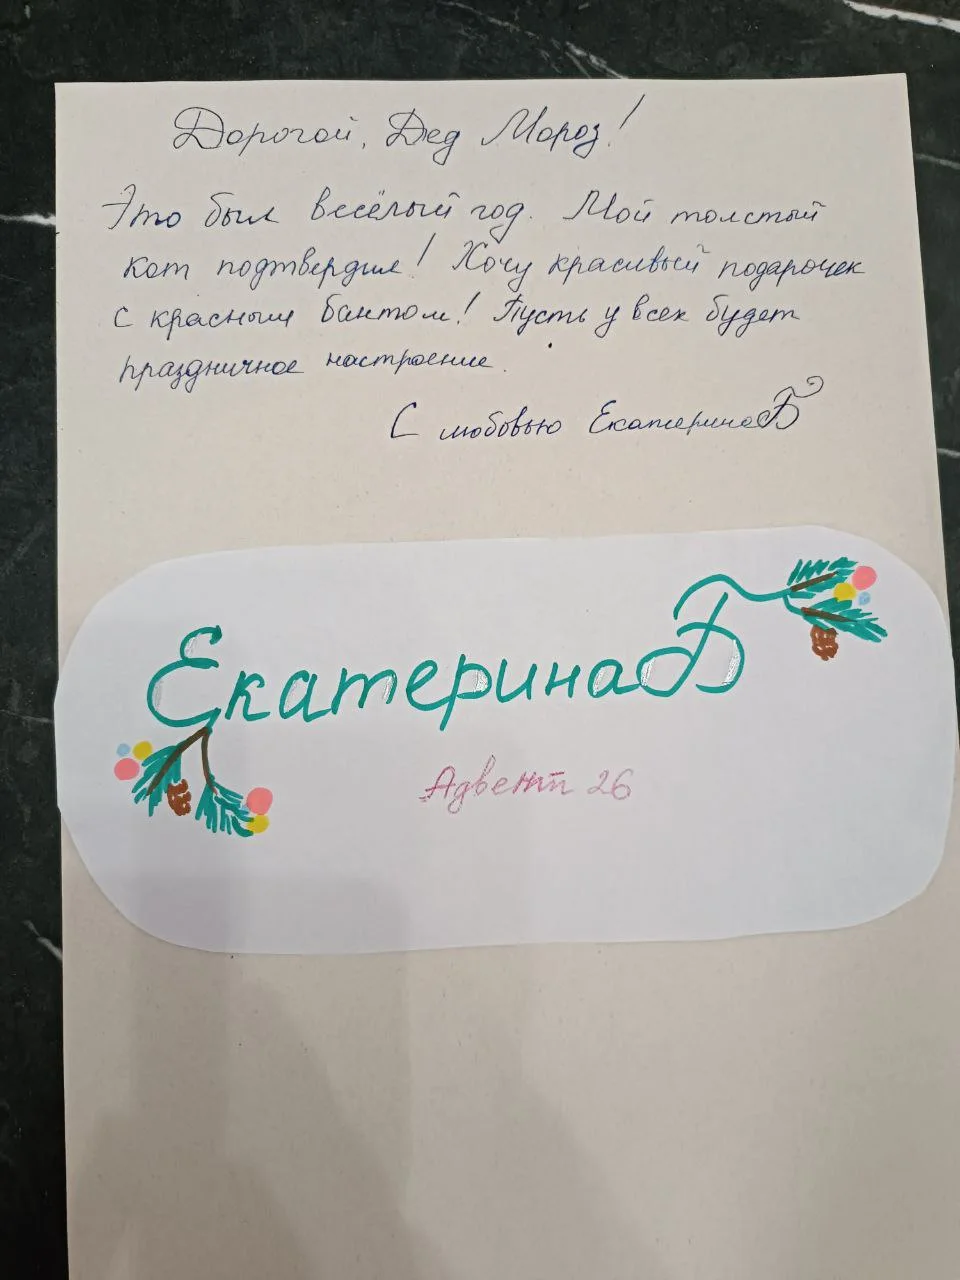 Дорогой, Дед Мороз!
Это был весёлый год. Мой толстый
кот подтвердил! Хочу красивый подарочек
с красным бантом! Пусть у всех будет
праздничное настроение.
С любовью ЕкатеринаБ
ЕкатеринаБ
Адвент 26